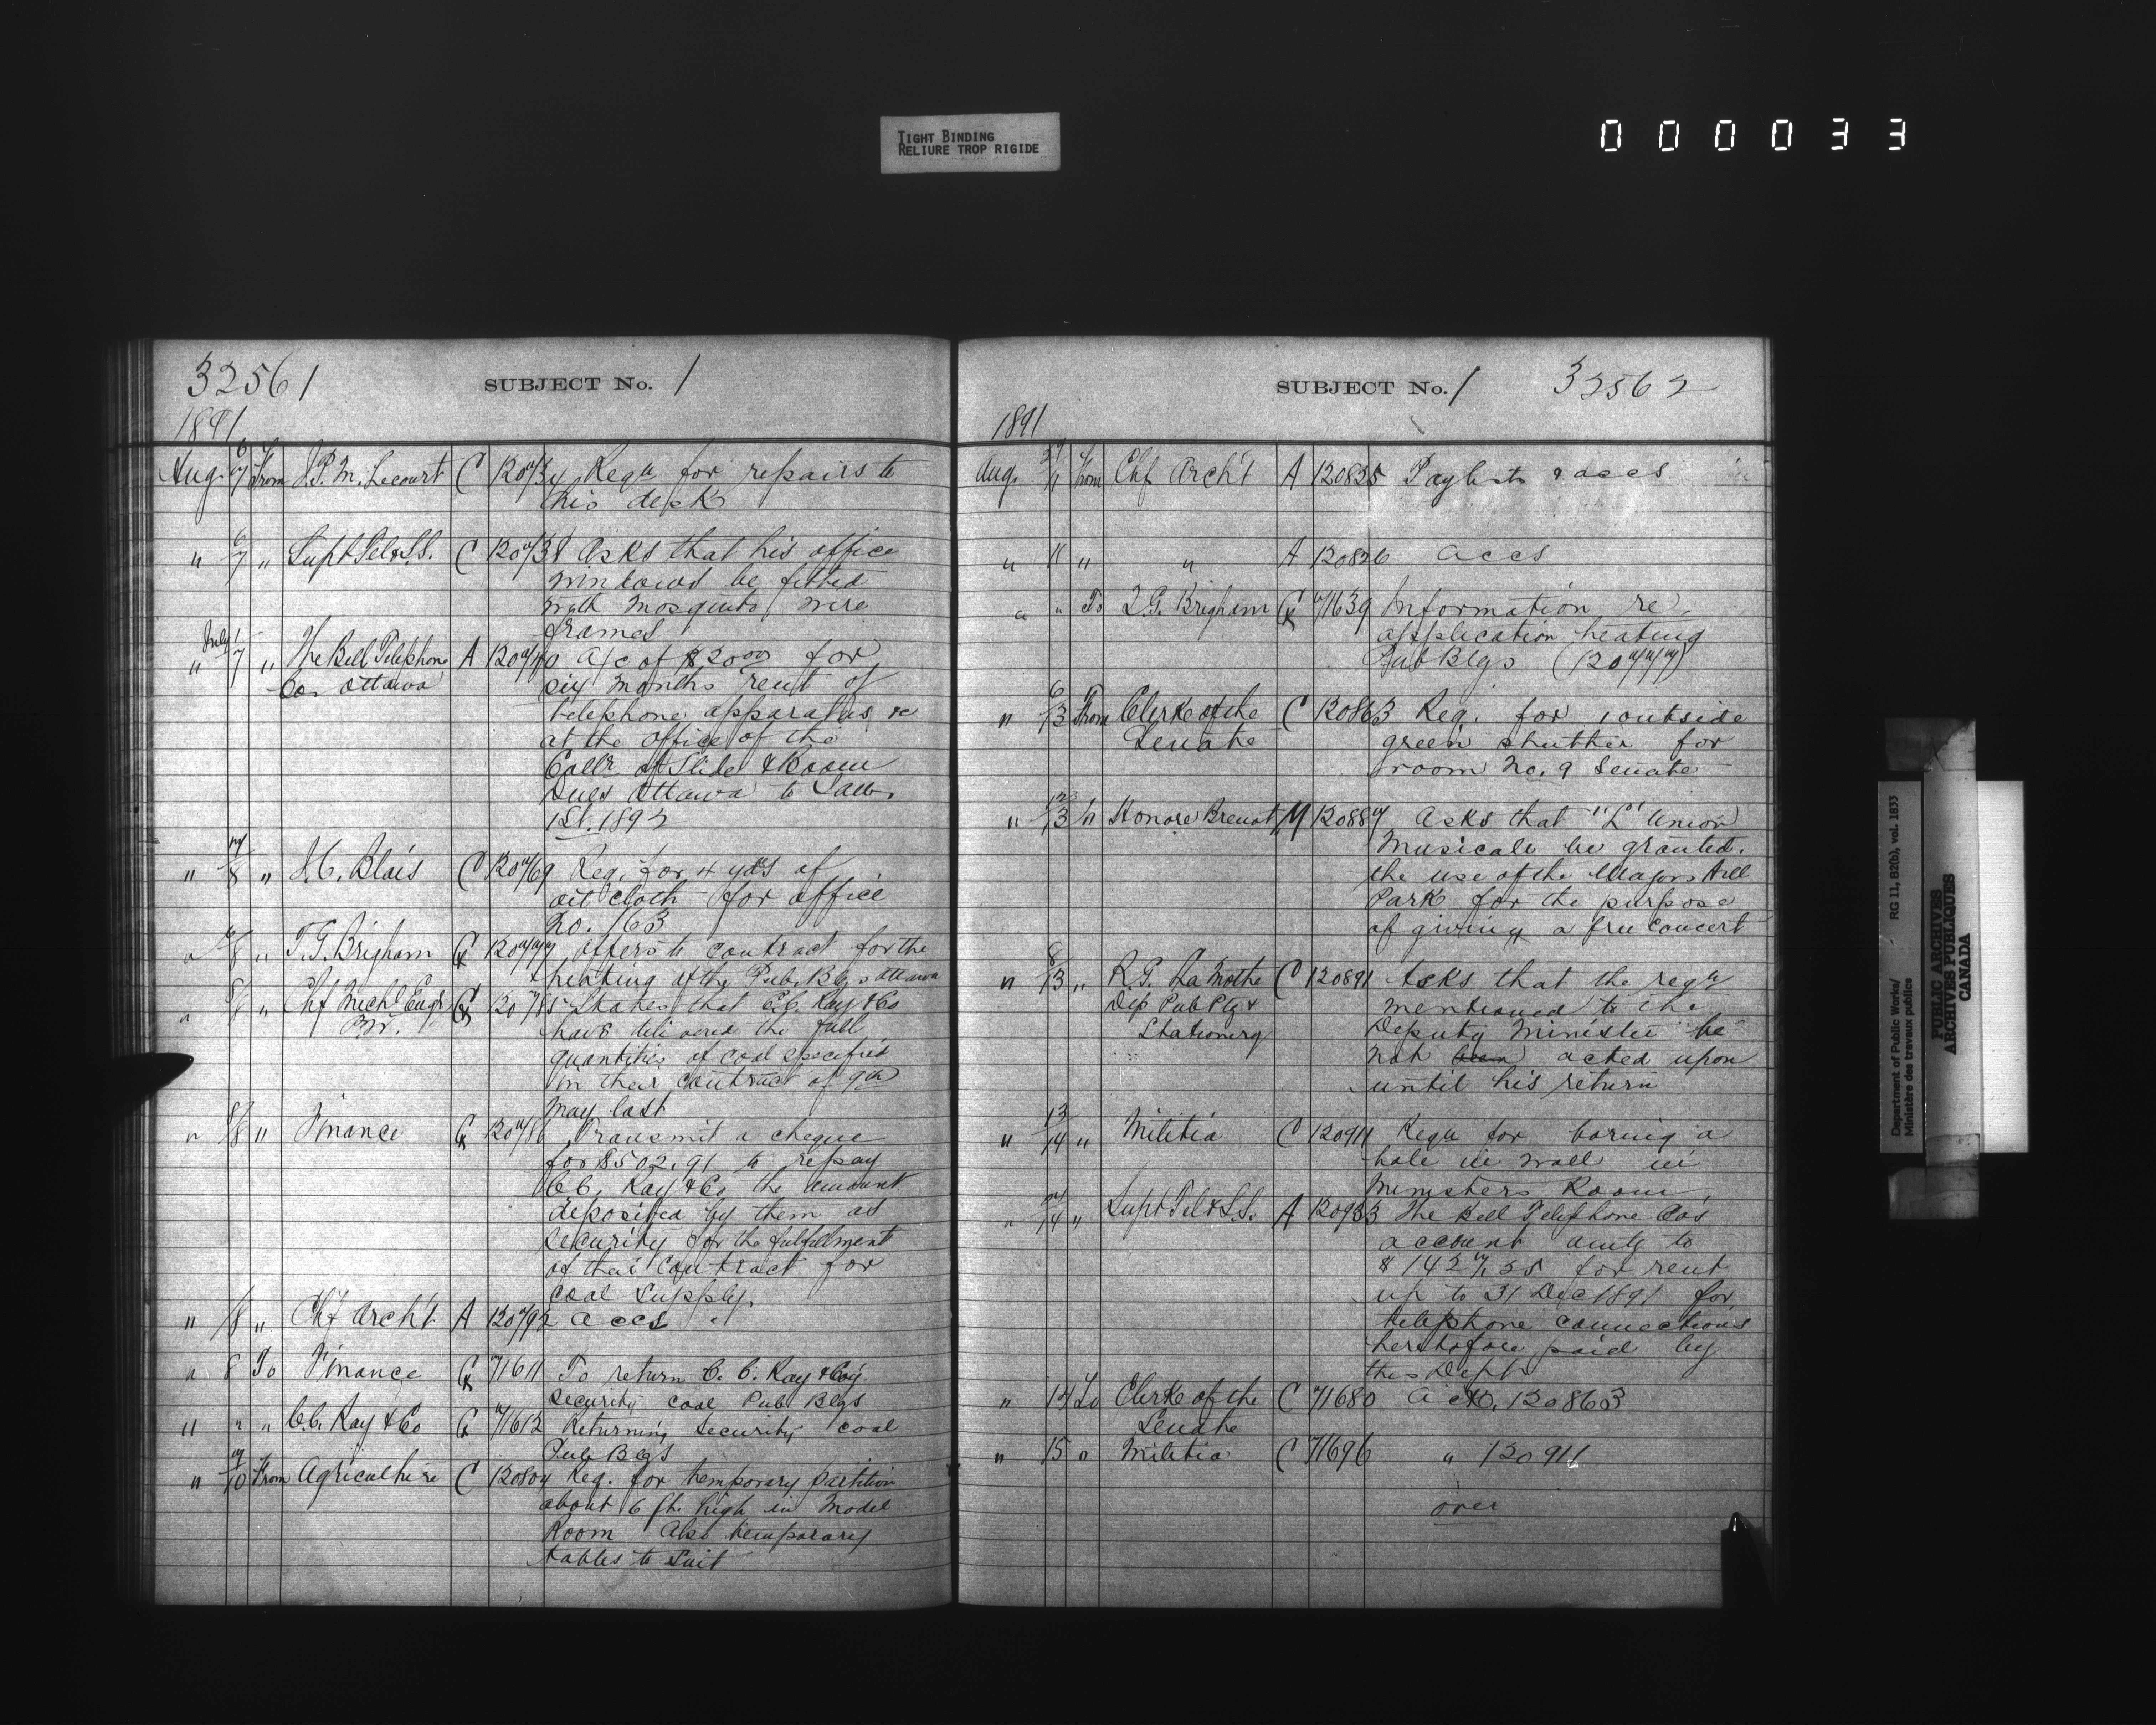 TIGHT BINDING
RELIURE TROP RIGIDE
000033
32561 SUBJECT No. 1
1891
Aug. 6/7 From J.P.M. Lecourt C 120734 Reqn for repairs to
his desk
" 6/7 " Supt Tel & S.S. C 120738 Asks that his office
windows be fitted
with mosquito wire
frames
" July 1/7 " The Bell Telephone A 120740 a/c of $20 00 for
Co. Ottawa six months rent of
telephone apparatus &c
at the office of the
Collr of Slide & Boom
Dues Ottawa to Jan.
1st. 1892
" 7/8 " J.C. Blais C 120769 Req. for 4 yds of
oil cloth for office
No. 163
" 8 " T.G. Brigham 120777 offers to contract for the
heating of the Pub. Blgs Ottawa
" 8/8 " Chf Mechl Engr 120785 States that C.C. Ray & Co
Br. have delivered the full
quantities of coal specified
in their contract of 9th
May last
" 8/8 " Finance 120786 Transmit a cheque
for $502.91 to repay
C.C. Ray & Co the amount
deposited by them as
security for the fulfillment
of their contract for
coal supply.
" /8 " Chf Arch't A 120792 accs
" 8 To Finance 71611 To return C.C. Ray & Coy.
security coal Pub Blgs
" " " C.C. Ray & Co 71612 Returning security coal
Pub Blgs
" /10 From Agriculture C 120804 Req. for temporary partition
about 6 ft. high in Model
Room Also temporary
tables to suit
SUBJECT No. 1 32562
1891
Aug. /11 from Chf Arch't A 120825 Paylists & accs
" 11 " " A 120826 accs
" " To T.G. Brigham 71639 Information re
application heating
Pub Blgs (120777)
" 6/13 From Clerk of the C 120863 Req. for 1 outside
Senate green shutter for
room No. 9 Senate
" 12/13 " Honore M 120887 Asks that "L" Union
Musicale be granted
the use of the Majors Hill
Park for the purpose
of giving a free concert
" 8/13 " R.G. LaMothe C 120891 Asks that the reqn
Dep Pub Ptg & mentioned to the
Stationery Deputy Minister be
not been acted upon
until his return
" 13/14 " Militia C 120911 Reqn for boring a
hole in wall in
Ministers Room
" /14 " Supt Tel & S.S. A 120933 The Bell Telephone Cos
account amtg to
$1427.55 for rent
up to 31 Dec 1891 for
telephone connections
heretofore paid by
this Dept
" 14 To Clerk of the C 71680 Ack. 120863
Senate
" 15 " Militia C 71696 " 120911
over
Department of Public Works/ RG 11, B2(b), vol. 1833
Ministère des travaux publics
PUBLIC ARCHIVES
ARCHIVES PUBLIQUES
CANADA